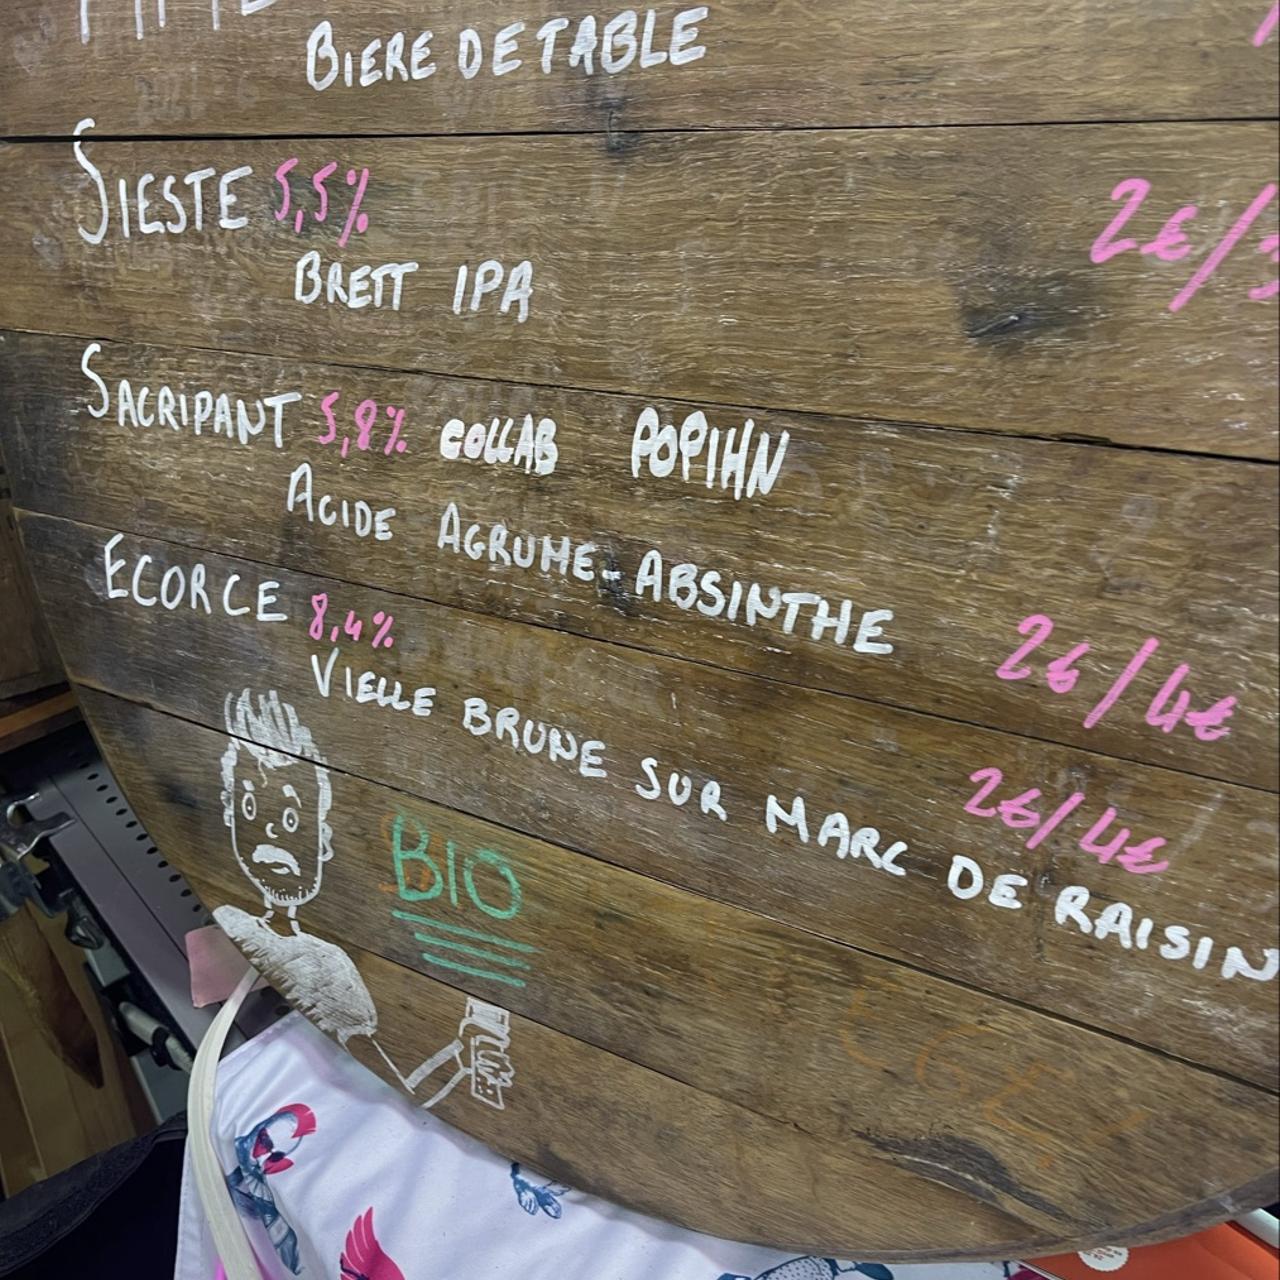 BIERE DE TABLE
SIESTE 5,5%
2€/3
BRETT IPA
SACRIPANT 5,8% COLLAB POPIHN
ACIDE AGRUME-ABSINTHE
2€/4€
ECORCE 8,4%
VIELLE BRUNE SUR MARC DE RAISIN
2€/4€
BIO